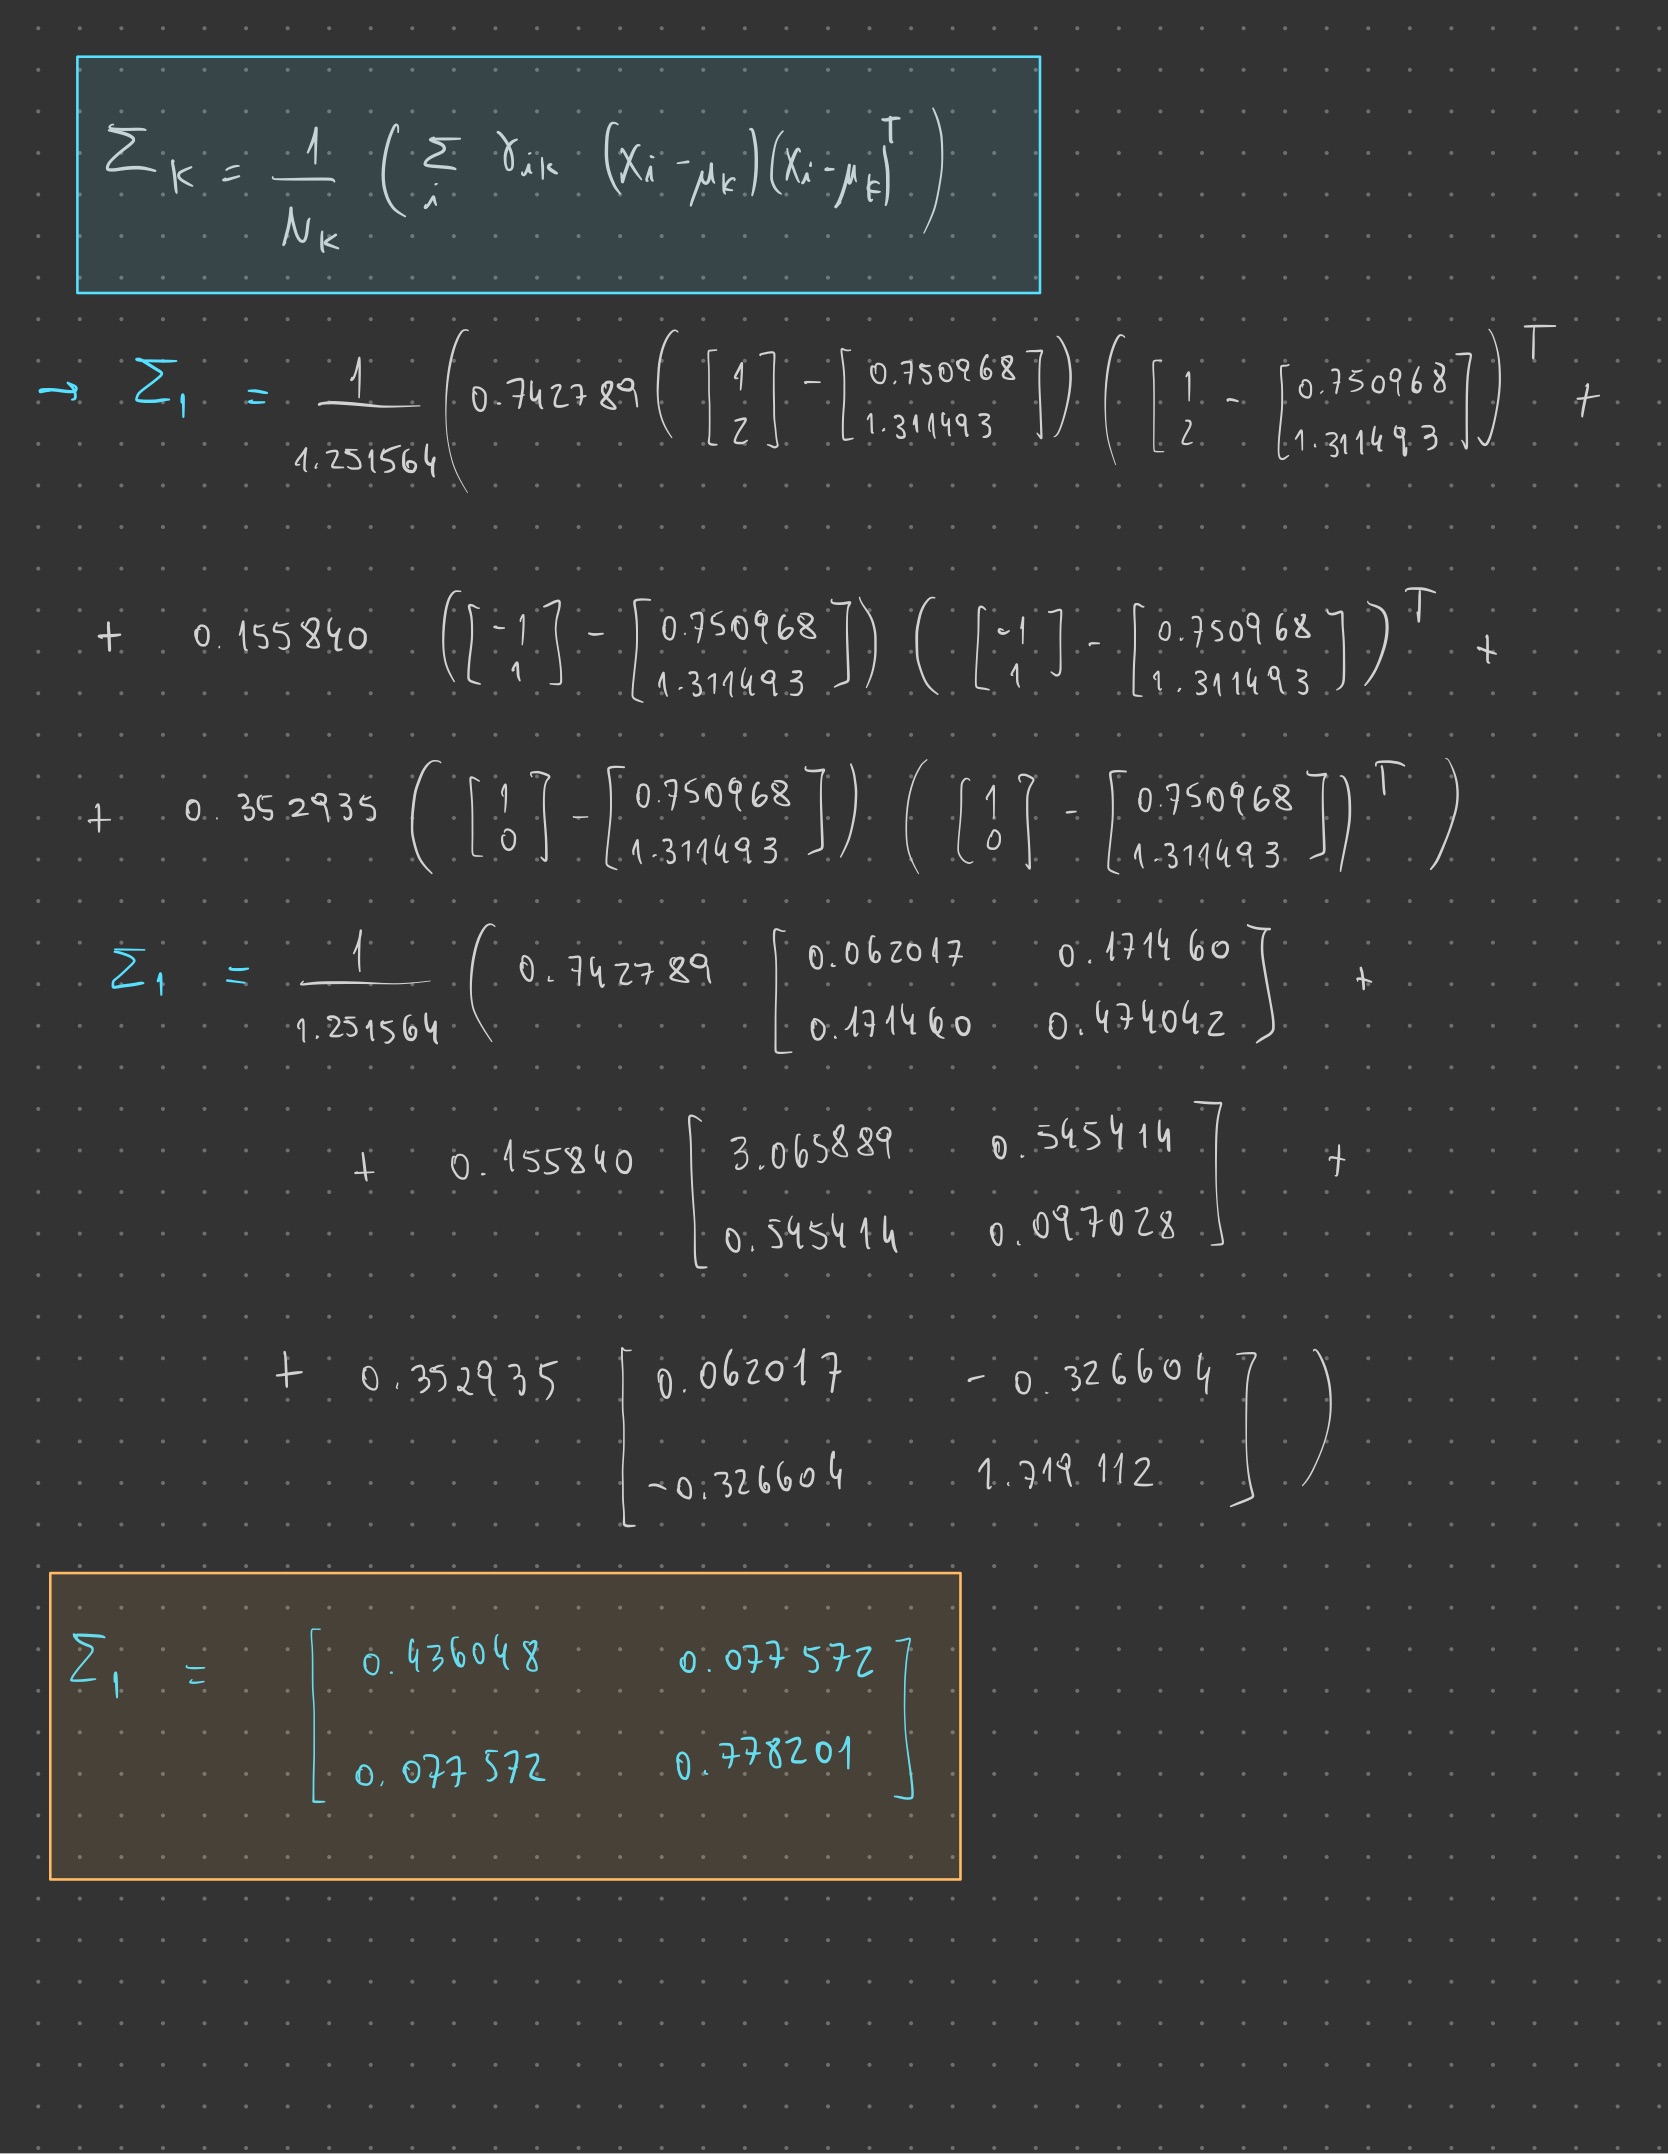 Σk = 1/Nk ( Σi γik (xi - μk)(xi - μk)^T )
→ Σ1 = 1/1.251564 ( 0.742789 ( [1 2] - [0.750968 1.311493] ) ( [1 2 - [0.750968 1.311493] )^T +
+ 0.155840 ( [-1 1] - [0.750968 1.311493] ) ( [-1 1] - [0.750968 1.311493] )^T +
+ 0.352935 ( [1 0] - [0.750968 1.311493] ) ( [1 0] - [0.750968 1.311493] )^T )
Σ1 = 1/1.251564 ( 0.742789 [ 0.062017 0.171460
0.171460 0.474042 ] +
+ 0.155840 [ 3.065889 0.545414
0.545414 0.097028 ] +
+ 0.352935 [ 0.062017 -0.326604
-0.326604 1.719112 ] )
Σ1 = [ 0.436048 0.077572
0.077572 0.778201 ]